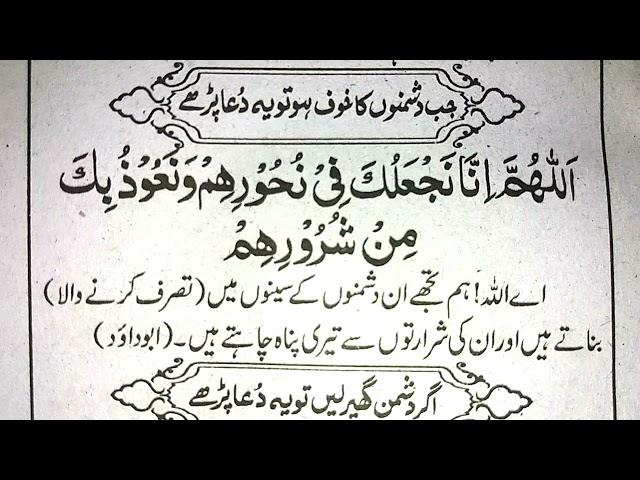 جب دشمنوں کا خوف ہو تو یہ دُعا پڑھے
اَللّٰهُمَّ اِنَّا نَجْعَلُكَ فِیْ نُحُوْرِهِمْ وَنَعُوْذُ بِكَ
مِنْ شُرُوْرِهِمْ
اے اللہ! ہم تجھے ان دشمنوں کے سینوں میں (تصرف کرنے والا)
بناتے ہیں اور ان کی شرارتوں سے تیری پناہ چاہتے ہیں۔ (ابوداؤد)
اگر دشمن گھیر لیں تو یہ دُعا پڑھے